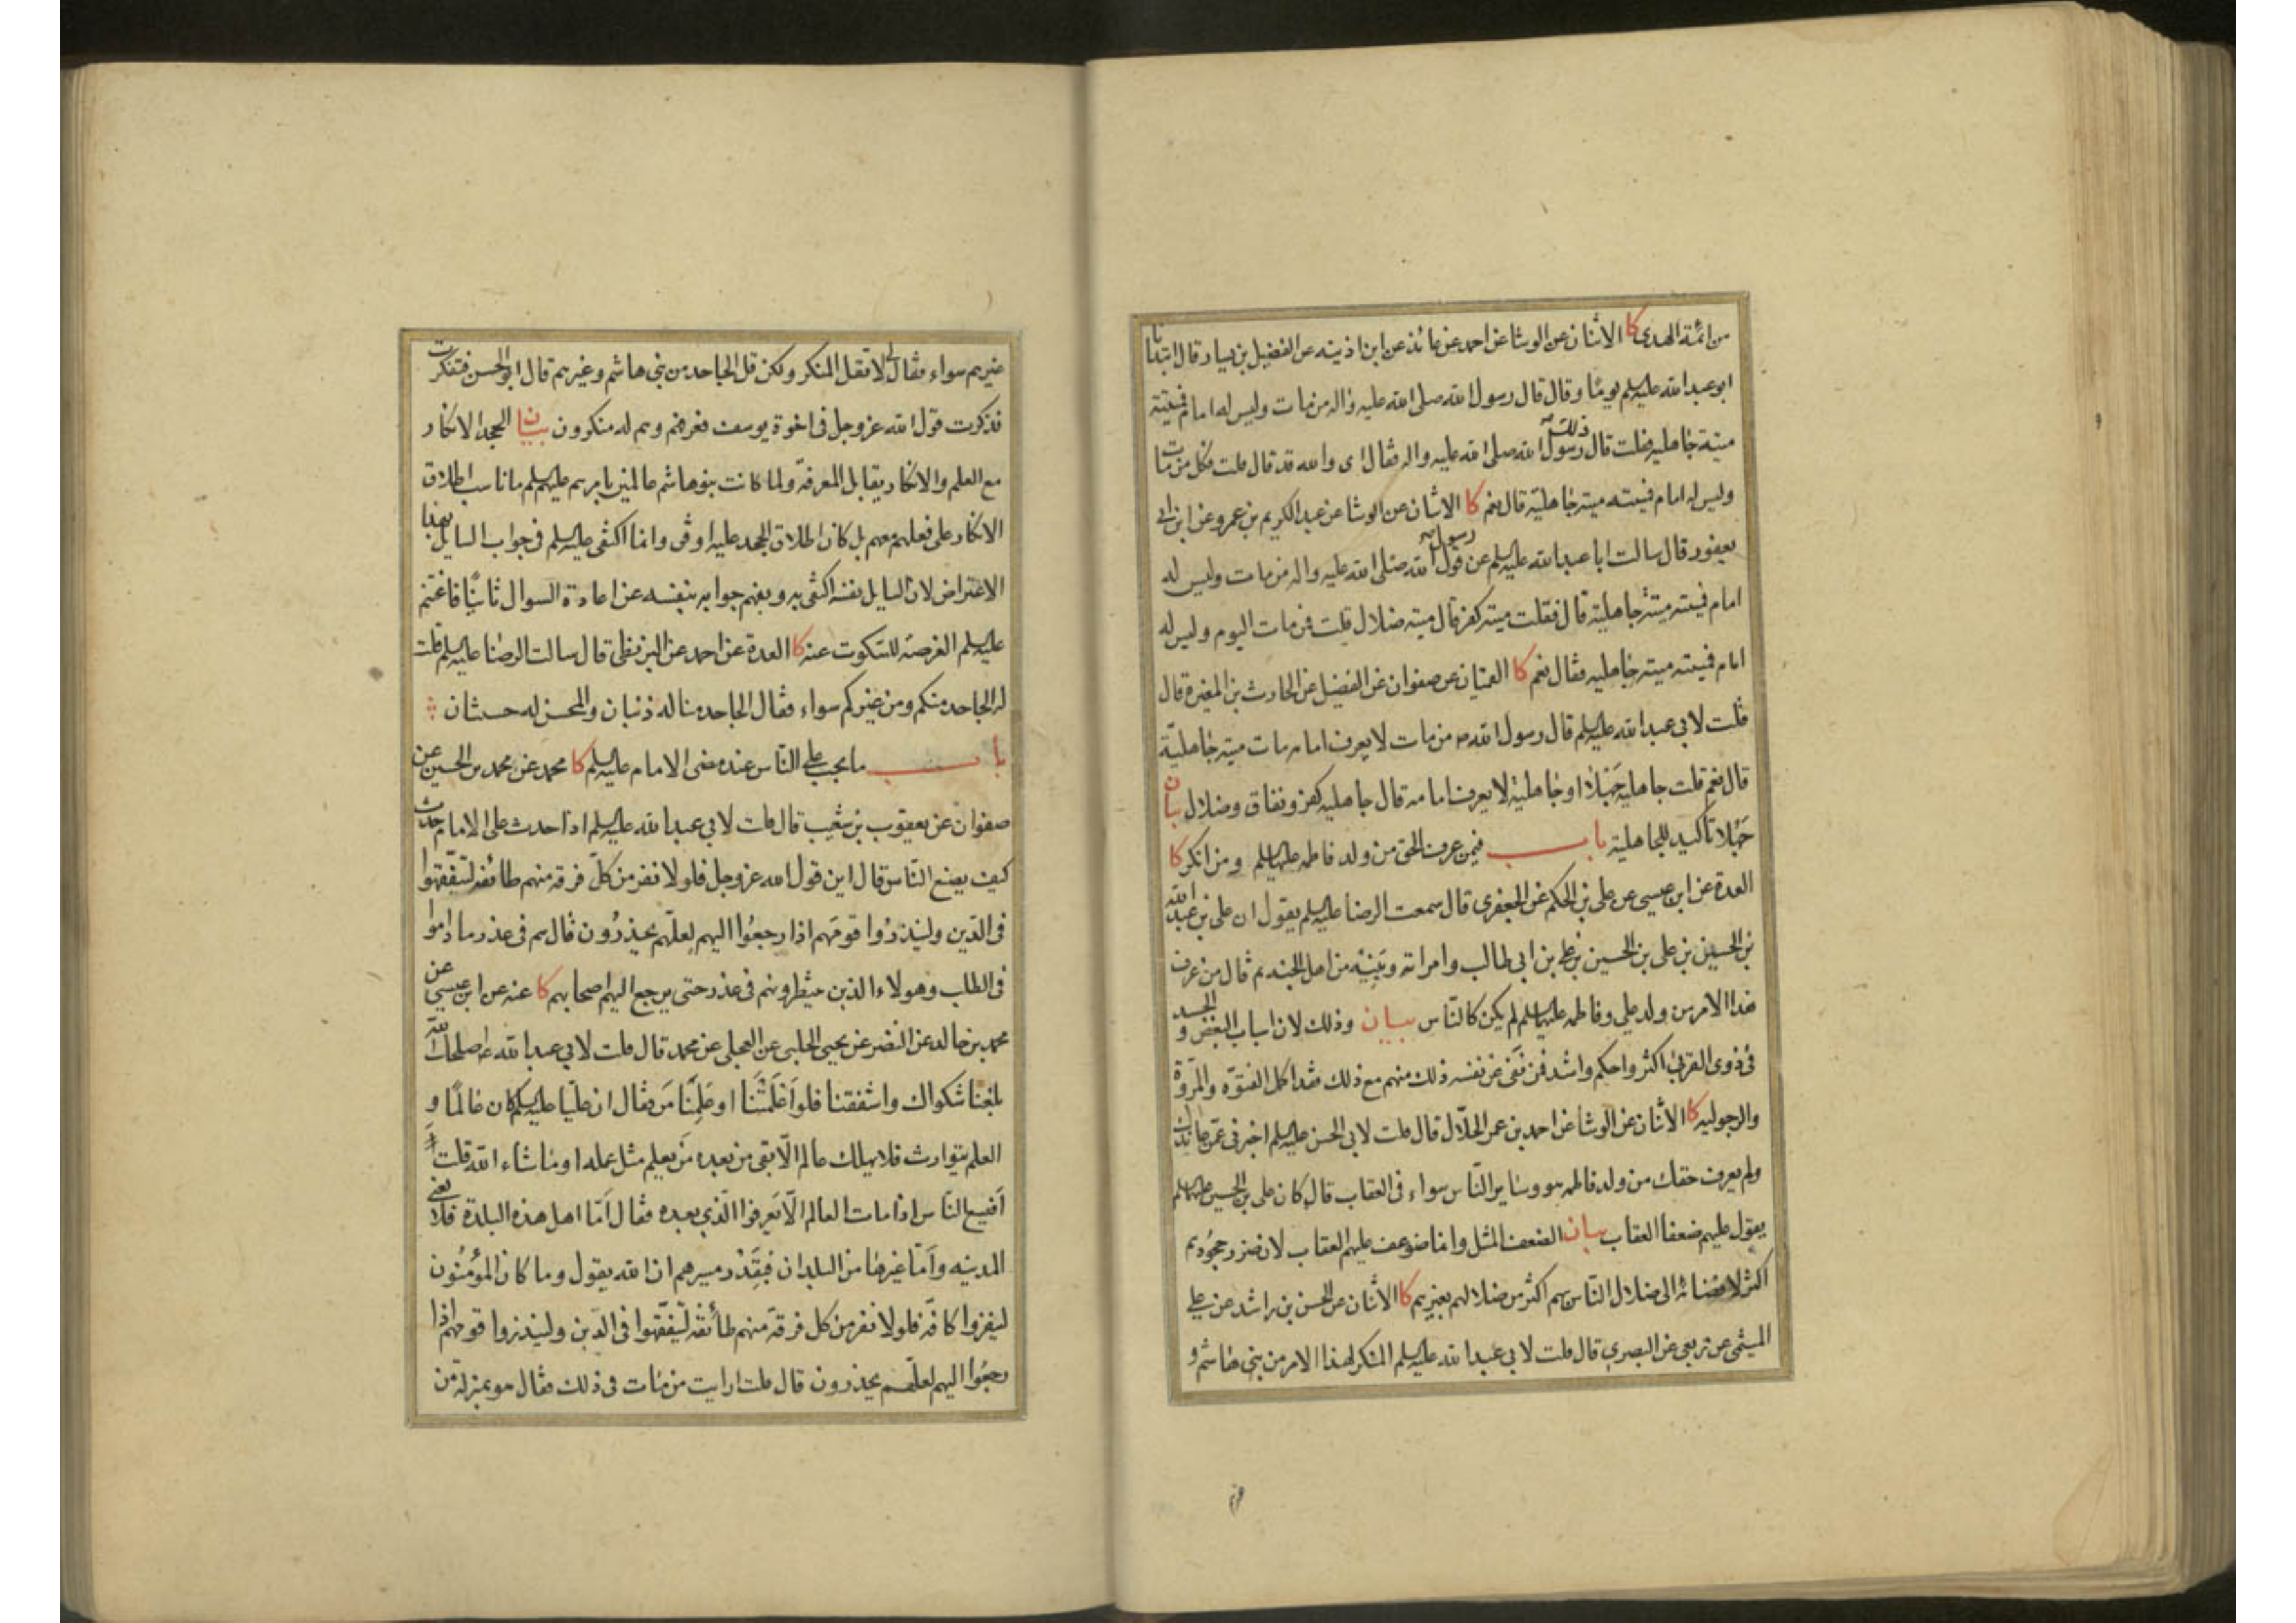 من ائمة الهدى كا الاثنان عن الوشا عن احمد عن عائذ عن ابن اذينه عن الفضيل بن يسار قال ابتدانا
ابو عبد الله عليه السلم يومًا وقال قال رسول الله صلى الله عليه واله من مات وليس له امام فميتته
ميتة جاهلية فقلت قال ذلك رسول الله صلى الله عليه واله فقال اى والله قد قال قلت فكل من مات
وليس له امام فميتته ميتة جاهلية قال نعم كا الاثنان عن الوشا عن عبد الكريم بن عمرو عن ابن ابى
يعفور قال سالت ابا عبد الله عليه السلم عن قول رسول الله صلى الله عليه واله من مات وليس له
امام فميتته ميتة جاهلية قال فقلت ميتة كفر قال ميتة ضلال قلت فمن مات اليوم وليس له
امام فميتته ميتة جاهليه فقال نعم كا القميان عن صفوان عن الفضيل عن الحارث بن المغيرة قال
قلت لابي عبد الله عليه السلم قال رسول الله ص من مات لا يعرف امامه مات ميتة جاهلية
قال نعم قلت جاهلية جهلاء او جاهلية لا يعرف امامه قال جاهلية كفر ونفاق وضلال بيان
جهلا تأكيد للجاهلية باب فيمن عرف الحق من ولد فاطمه عليها السلم ومن انكر كا
العدة عن ابن عيسى عن علي بن الحكم عن الجعفرى قال سمعت الرضا عليه السلم يقول ان علي بن عبد الله
بن الحسين بن علي بن الحسين بن علي بن ابى طالب وامراته وبنيه من اهل الجنه ثم قال من عرف
هذا الامر من ولد علي وفاطمه عليهما السلم لم يكن كالناس بيان وذلك لان اسباب البغض والحسد
فى ذوى القربى اكثر واحكم واشد فمن نفى عن نفسه ذلك منهم مع ذلك فقد اكمل الفتوّه والمروّة
والرجوليه كا الاثنان عن الوشا عن احمد بن عمر الحلّال قال قلت لابى الحسن عليه السلم اخبرنى عمّن عاندك
ولم يعرف حقك من ولد فاطمه هو وساير النّاس سواء فى العقاب قال كان علي بن الحسين عليهما السلم
يقول عليهم ضعفا العقاب بيان الضعف المثل وانما ضوعف عليهم العقاب لان ضرر جحودهم
اكثر لافضائه الى ضلال النّاس بهم اكثر من ضلالهم بغيرهم كا الاثنان عن الحسن بن راشد عن علي
الميثمى عن ربعى عن البصري قال قلت لابي عبد الله عليه السلم المنكر لهذا الامر من بنى هاشم و
غيرهم سواء فقال لى لا تقل المنكر ولكن قل الجاحد من بنى هاشم وغيرهم قال ابو الحسن فتفكرت
فذكرت قول الله عز وجل فى اخوة يوسف فعرفهم وهم له منكرون بيان الجحد الانكار
مع العلم والانكار يقابل المعرفة ولما كانت بنو هاشم عالمين بامرهم عليهم السلم ما ناسب اطلاق
الانكار على فعلهم معهم بل كان اطلاق الجحد عليه اوفى وانما اكتفى عليه السلم فى جواب السايل بهذا
الاعتراض لان السايل نفسه اكتفى به وبفهم جوابه بنفسه عن اعادة السوال ثانيًا فاغتنم
عليه السلم الفرصة للسكوت عنه كا العدة عن احمد عن البزنطى قال سالت الرضا عليه السلم قلت
له الجاحد منكم ومن غيركم سواء فقال الجاحد منا له ذنبان والمحسن له حسنتان
باب ما يجب على النّاس عند مضى الامام عليه السلم كا محمد عن محمد بن الحسين عن
صفوان عن يعقوب بن شعيب قال قلت لابى عبد الله عليه السلم اذا حدث على الامام حدث
كيف يصنع النّاس قال اين قول الله عز وجل فلولا نفر من كلّ فرقة منهم طائفة ليتفقّهوا
فى الدّين ولينذرُوا قومَهم اذا رجعُوا اليهم لعلّهم يحذرُون قال هم فى عذر ما دامُوا
فى الطلب وهولاء الذين ينتظرونهم فى عذر حتى يرجع اليهم اصحابهم كا عنه عن ابن عيسى عن
محمد بن خالد عن النضر عن يحيى الحلبى عن العجلى عن محمد قال قلت لابى عبد الله ع اصلحك الله
بلغنا شكواك واشفقنا فلو اَعلمْتَنا او عَلِمْنا مَن فقال ان عليّا عليه السلم كان عالمًا و
العلم يتوارث فلا يهلك عالم الّا بقى من بعده مَن يعلم مثل علمه او ما شاء الله قلت
اَفيسع النّاس اذا مات العالم الّا يَعرفوا الّذي بعده فقال اَمّا اهل هذه البلدة فلا يعنى
المدينه واَمّا غيرها من البلدان فبِقَدْر مسيرهم ان الله يقول وما كان المؤمنُون
لينفروا كافّه فلولا نفر من كل فرقة منهم طائفة ليتفقّهوا فى الدّين ولينذروا قومهم اذا
رجعُوا اليهم لعلّهم يحذرون قال قلت ارايت من مات فى ذلك فقال هو بمنزلة من